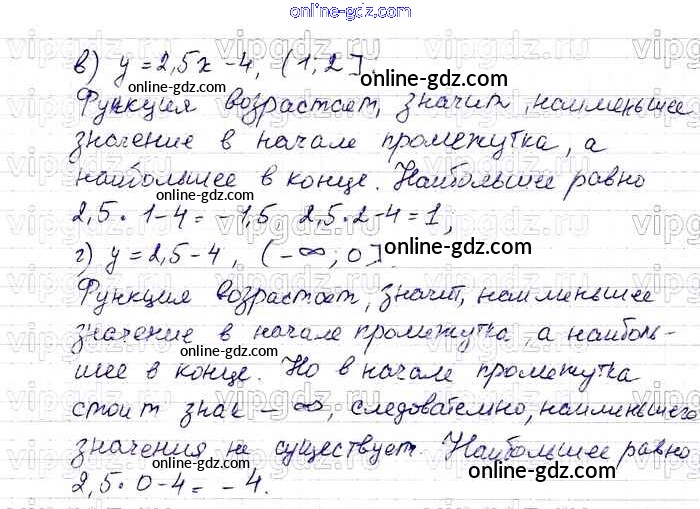 online-gdz.com
в) y = 2,5x - 4, (1; 2]
online-gdz.com
Функция возрастает, значит, наименьшее
значение в начале промежутка, а
наибольшее в конце. Наибольшее равно
2,5 · 1 - 4 = -1,5 2,5 · 2 - 4 = 1;
г) y = 2,5 - 4, (-∞; 0].
Функция возрастает, значит, наименьшее
значение в начале промежутка, а наиболь-
шее в конце. Но в начале промежутка
стоит знак -∞, следовательно, наименьшего
значения не существует. Наибольшее равно
2,5 · 0 - 4 = -4.